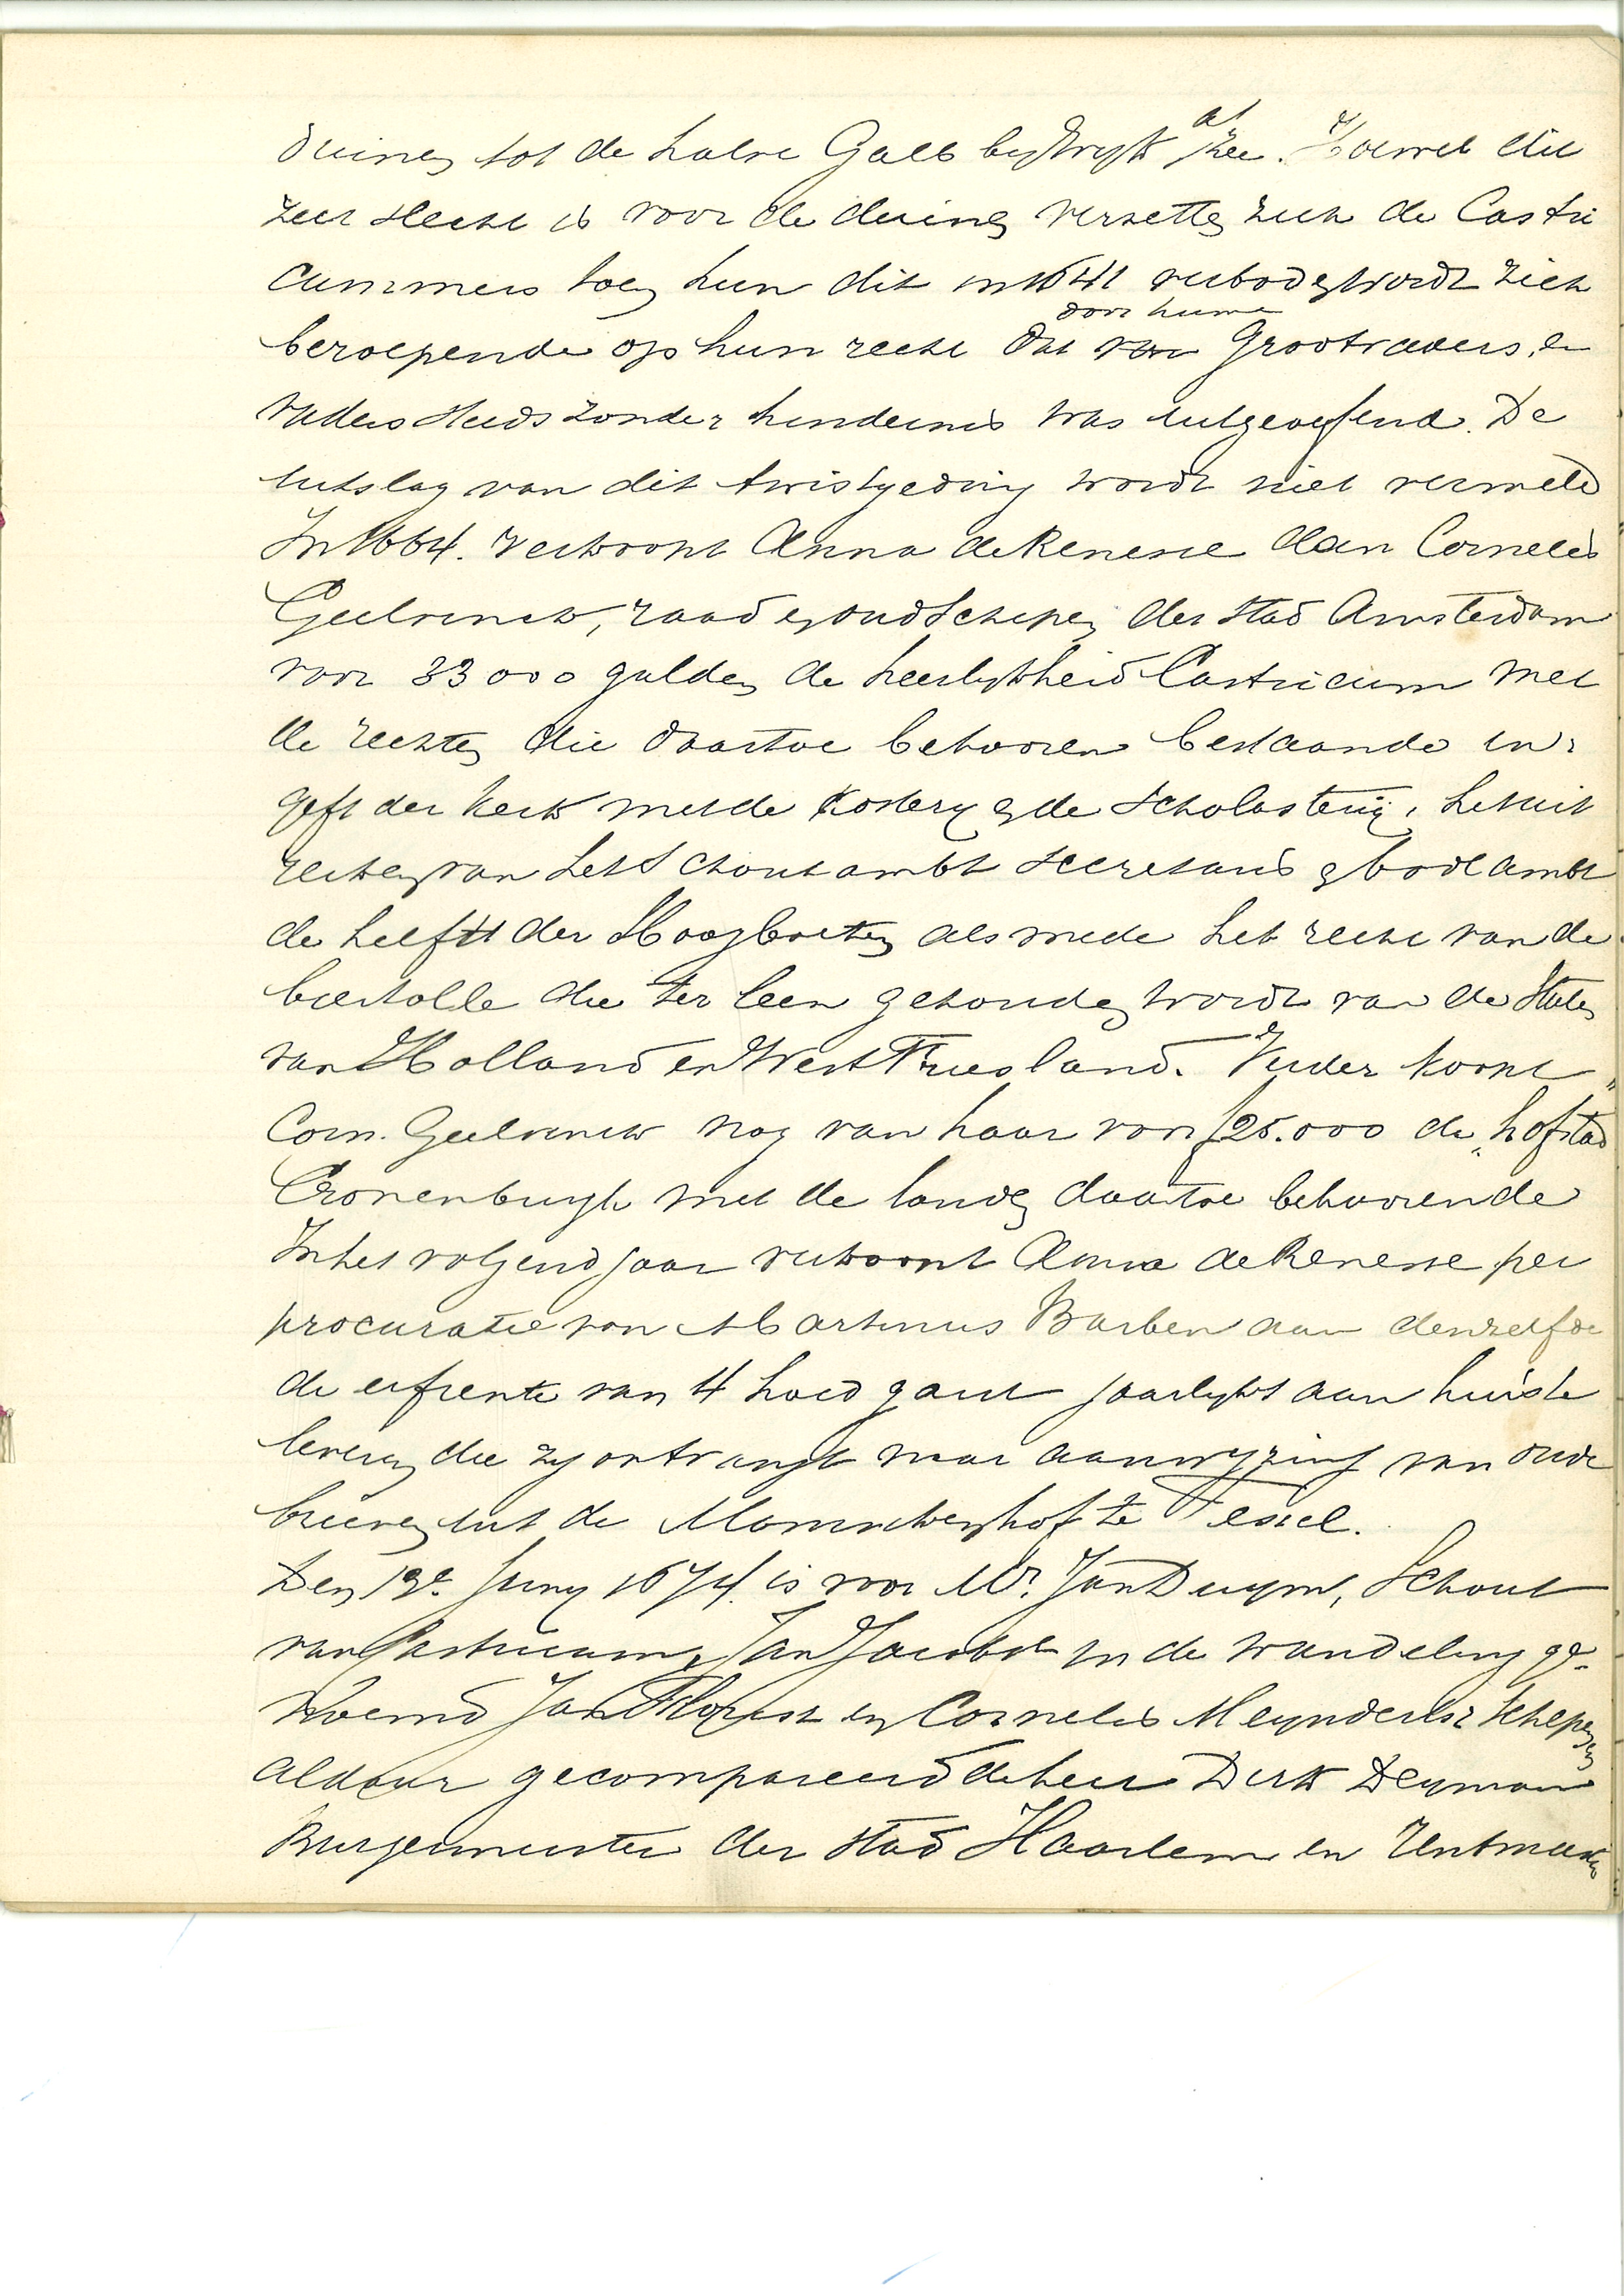 duinen tot de halve Galg by Wyk a/ Zee. Hoewel dit
zeer slecht is voor de duinen verzetten zich de Castri
cummers toen hun dit in 1641 verboden wordt zich
beroepende op hun recht dat door hunne Grootvaders en
vaders steeds zonder hindernis was uitgeoefend. De
uitslag van dit twistgeding wordt niet vermeld
In 1664. verkoopt Anna de Renesse aan Cornelis
Geelvinck, raad en oud Schepen der stad Amsterdam
voor 33000 gulden de heerlykheid Castricum met
de rechten die daartoe behooren bestaande in:
gift der kerk met de kostery en de Scholastery, het uit
reiken van het Schoutambt Secretaris en bode ambt
de helft der Hoogboeten alsmede het recht van de
biertolle die ter leen gehouden wordt van de Staten
van Holland en West Friesland. Verder koopt
Corn. Geelvinck nog van haar voor f25.000 de "hofstad
Cronenburgh met de landen daartoe behoorende
In het volgend jaar verkoopt Anna de Renesse per
procuratie van Martinus Barben aan denzelfde
de erfrente van 4 hoed garst jaarlyks aan huis te
leveren die zy ontvangt naar aanwyzing van oude
brieven uit de Monnickenhof te Texel.
Den 13e Juny 1674. is voor Mr. Jan Duym, Schout
van Castricum, Jan Jacobsz in de wandeling ge-
noemd Jan en Cornelis Meynderlsz Schepenen
aldaar gecompareerd de heer Dirk Deyman
Burgermeester der stad Haarlem en Rentmeester